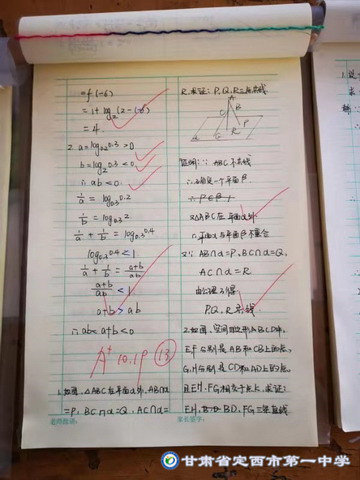 =f(-6)
=1+log₂[2-(-6)]
=4.
2. a=log₀.₂0.3>0
b=log₂0.3<0
∴ab<0
1/a=log₀.₃0.2
1/b=log₀.₃2
1/a+1/b=log₀.₃0.4
log₀.₃0.4<1
1/a+1/b=(a+b)/ab
(a+b)/ab<1
a+b>ab
∴ab<a+b<0
A+ 10.19 13
1.如图,△ABC在平面α外,AB∩α
=P,BC∩α=Q,AC∩α=
R,求证:P,Q,R三点共线
A
B
C
Q
R
P
α
证明:∵ABC不共线
又∵△ABC在平面α外
∴平面α与平面β不重合
又∵AB∩α=P,BC∩α=Q,
AC∩α=R
由公理3得
P,Q,R共线
2.如图,空间四边形ABCD中,
E,F分别是AB和CB上的点,
G,H分别是CD和AD上的点,
且EH,FG相交于点K,求证:
EH,BD,FG三条直线
甘肃省定西市第一中学